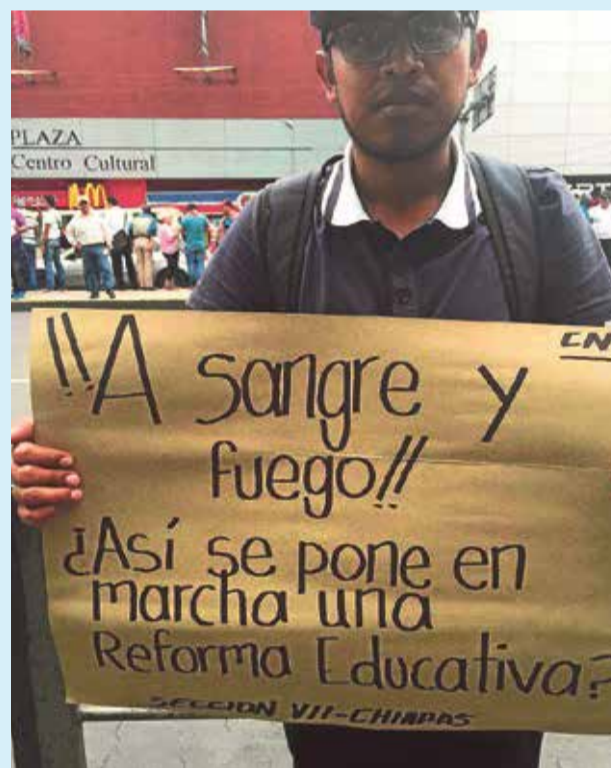 PLAZA
Centro Cultural
CN
!!A sangre y
fuego!!
¿Así se pone en
marcha una
Reforma Educativa?
SECCION VII-CHIAPAS